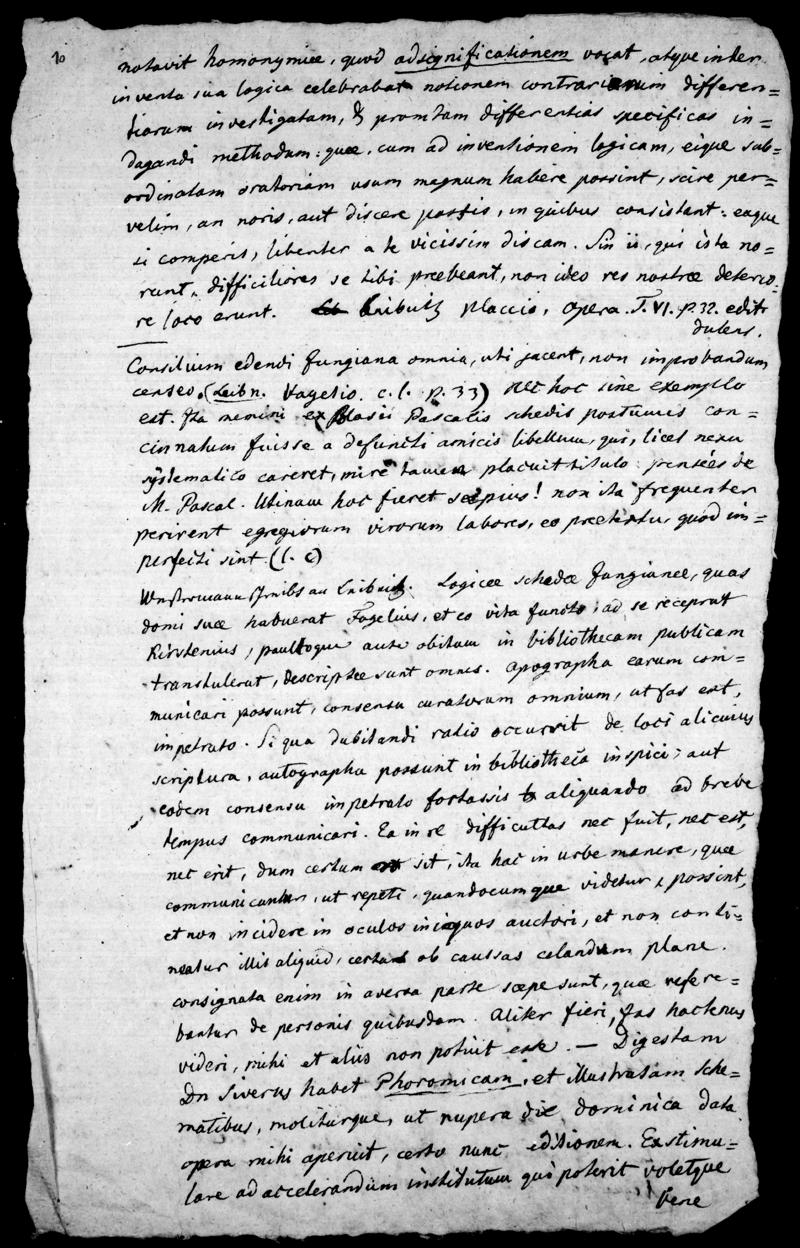 10
notavit homonymiae, quod adsignificationem vocat, atque inter
inventa sua logica celebrabat notionem contrariarum differen=
tiarum investigatam, & promtam differentias specificas in=
dagandi methodum: quae, cum ad inventionem logicam, eique sub=
ordinatam oratoriam usum magnum habere possint, scire per=
velim, an noris, aut discere possis, in quibus consistant: eaque
si comperis, libenter a te vicissim discam. Sin ii, qui ista no=
runt, difficiliores se tibi praebeant, non ideo res nostrae deterio
re loco erunt. Leibnitz Placcio, Opera. T. VI. p. 32. edit
dutens.
Consilium edendi Jungiana omnia, uti jacent, non improbandum
censeo. (Leibn. Vagetio. c. l. p. 33) nec hoc sine exemplo
est. Ita memini ex Blasii Pascalis schedis postumis con=
cinnatum fuisse a defuncti amicis libellum, qui, licet nexu
systematico careret, mire tamen placuit titulo: pensées de
M. Pascal. Utinam hoc fieret saepius! non ita frequenter
perirent egregiorum virorum labores, eo praetextu, quod im=
perfecti sint (l. c)
an Leibnitz. Logicae schedae Jungianae, quas
domi suae habuerat Fogelius, et eo vita functo, ad se receperat
Kirstenius, paulloque ante obitum in bibliothecam publicam
transtulerat, descriptae sunt omnes. Apographa earum com=
municari possunt, consensu curatorum omnium, ut fas est,
impetrato. Si qua dubitandi ratio occurrit de loci alicuius
scriptura, autographa possunt in bibliotheca inspici; aut
eodem consensu impetrato fortassis aliquando ad breve
tempus communicari. Ea in re difficultas nec fuit, nec est,
nec erit, dum certum sit, ita hac in urbe manere, quae
communicantur, ut repeti, quandocumque videtur, possint,
et non incidere in oculos iniquos auctori, et non conti=
neatur illis aliquid, certas ob caussas celandum plane.
consignata enim in aversa parte saepe sunt, quae refere=
bantur de personis quibusdam. Aliter fieri, fas hactenus
videri, mihi et aliis non potuit esse. — Digestam
Dn Siverus habet Phoronicam, et illustratam sche=
matibus, moliturque, ut nupera die dominica data
opera mihi aperuit, certo nunc editionem. Exstimu=
lare ad accelerandum institutum qui poterit voletque
bene